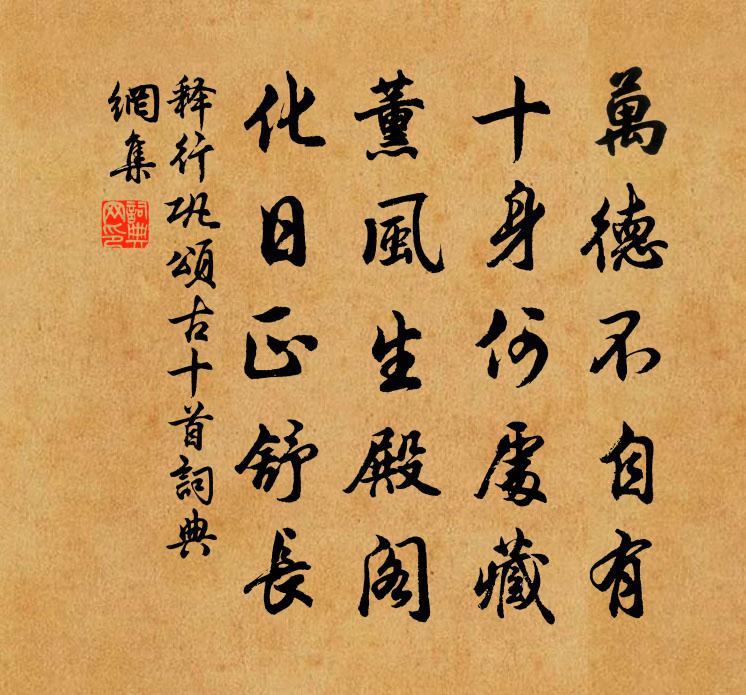 萬德不自有
十身何處藏
薰風生殿閣
化日正舒長
释行巩頌古十首詞典
網集
詞典網印